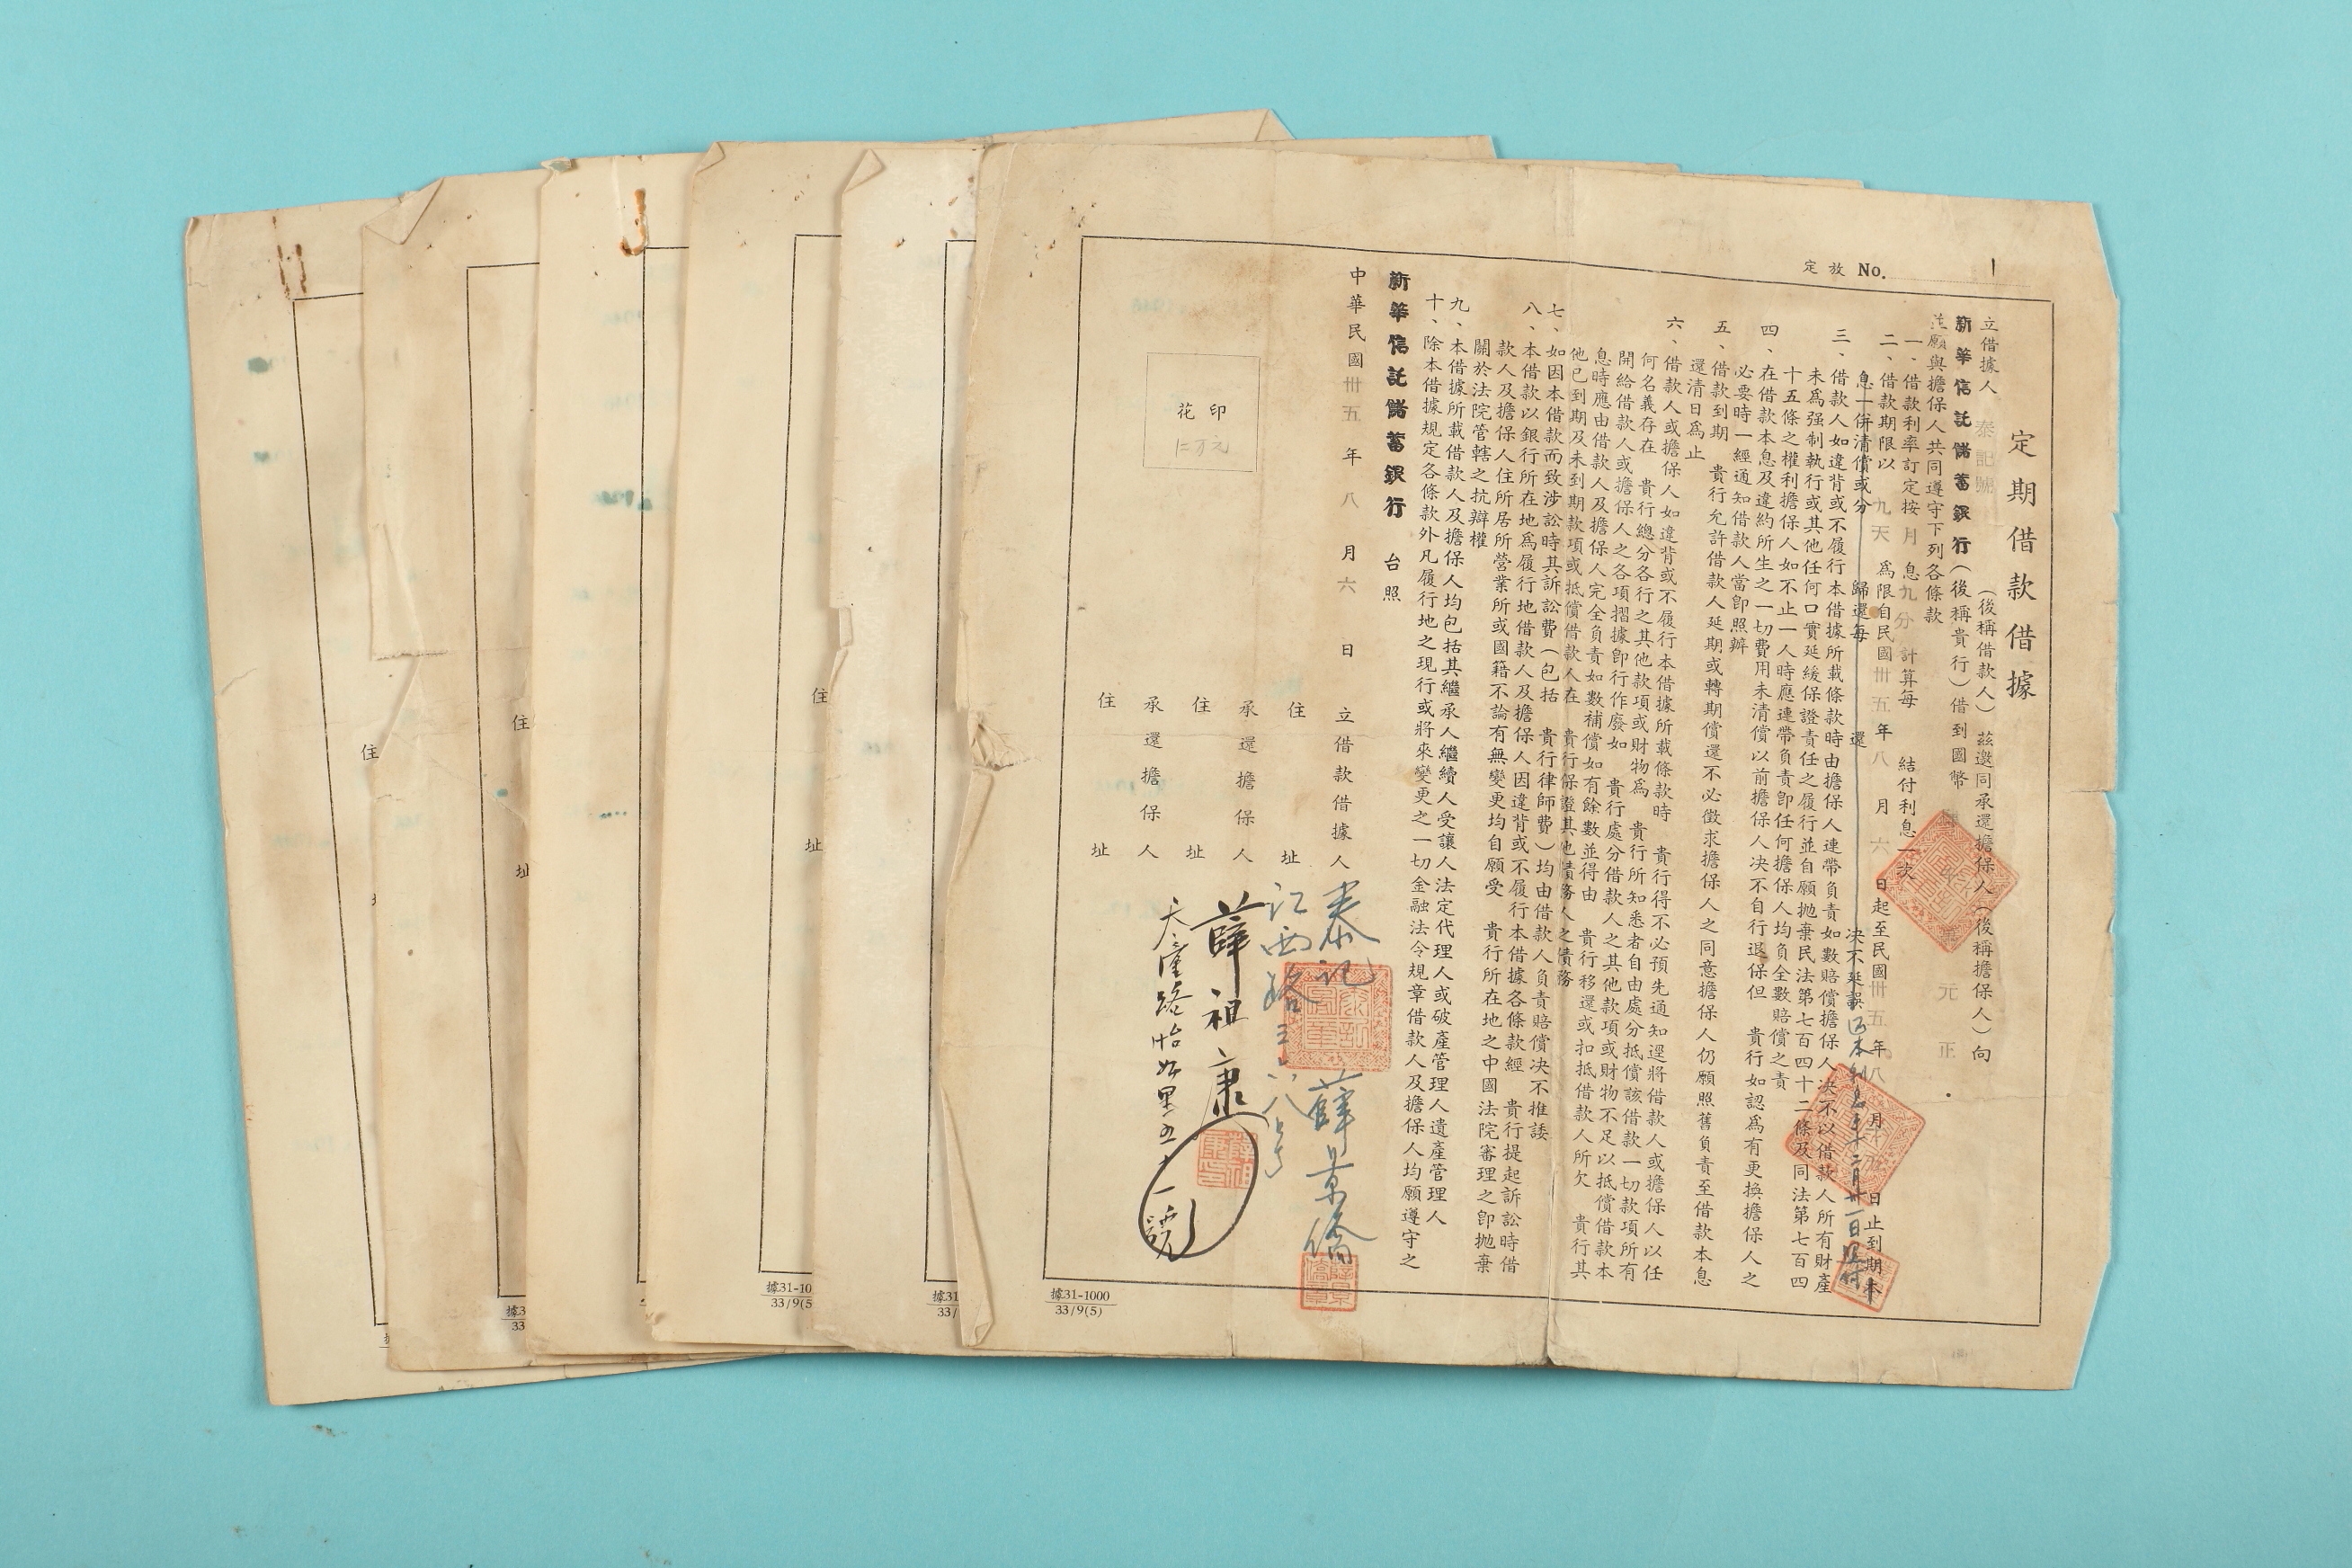 定放 No.
定期借款借據
立借據人 泰記號 (後稱借款人) 茲邀同承還擔保人(後稱擔保人)向
新華信託儲蓄銀行(後稱貴行)借到國幣 元正
並願與擔保人共同遵守下列各條款
一、借款利率訂定按月息九分計算每 結付利息一次
二、借款期限以 九天 為限自民國卅五年八月六日起至民國卅五年八月 日止到期本
息一併清償或分 歸還每 還 決不延誤
三、借款人如違背或不履行本借據所載條款時由擔保人連帶負責如數賠償擔保人決不以借款人所有財產
未為强制執行或其他任何口實延緩保證責任之履行並自願拋棄民法第七百四十二條及同法第七百四
十五條之權利擔保人如不止一人時應連帶負責即任何擔保人均負全數賠償之責
四、在借款本息及違約所生之一切費用未清償以前擔保人決不自行退保但 貴行如認為有更換擔保人之
必要時一經通知借款人當即照辦
五、借款到期 貴行允許借款人延期或轉期償還不必徵求擔保人之同意擔保人仍願照舊負責至借款本息
還清日為止
六、借款人或擔保人如違背或不履行本借據所載條款時 貴行得不必預先通知逕將借款人或擔保人以任
何名義存在 貴行總分各行之其他款項或財物為 貴行所知悉者自由處分抵償該借款一切款項所有
開給借款人或擔保人之各項摺據即行作廢如 貴行處分借款人之其他款項或財物不足以抵償借款本
息時應由借款人及擔保人完全負責如數補償如有餘數並得由 貴行移還或扣抵借款人所欠 貴行其
他已到期及未到期款項或抵償借款人在 貴行保證其他債務人之債務
七、如因本借款而致涉訟時其訴訟費(包括 貴行律師費)均由借款人負責賠償決不推諉
八、本借款以銀行所在地為履行地借款人及擔保人因違背或不履行本借據各條款經 貴行提起訴訟時借
款人及擔保人住所居所營業所或國籍不論有無變更均自願受 貴行所在地之中國法院審理之即拋棄
關於法院管轄之抗辯權
九、本借據所載借款人及擔保人均包括其繼承人繼續人受讓人法定代理人或破產管理人遺產管理人
十、除本借據規定各條款外凡履行地之現行或將來變更之一切金融法令規章借款人及擔保人均願遵守之
新華信託儲蓄銀行 台照
中華民國卅五年八月六日
立借款借據人 泰記 薛景僑
住址 江西路三六八号
承還擔保人 薛祖康
住址 天潼路怡如里五十一號
承還擔保人
住址
印花
仁万元
據31-1000
33/9(5)
住
據31
33/
住址
據31-10
33/9(5
住址
據3
33
住